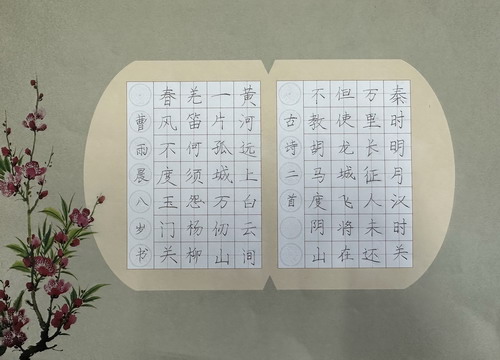 秦时明月汉时关
万里长征人未还
但使龙城飞将在
不教胡马度阴山
古诗二首
黄河远上白云间
一片孤城万仞山
羌笛何须怨杨柳
春风不度玉门关
曹雨晨八岁书